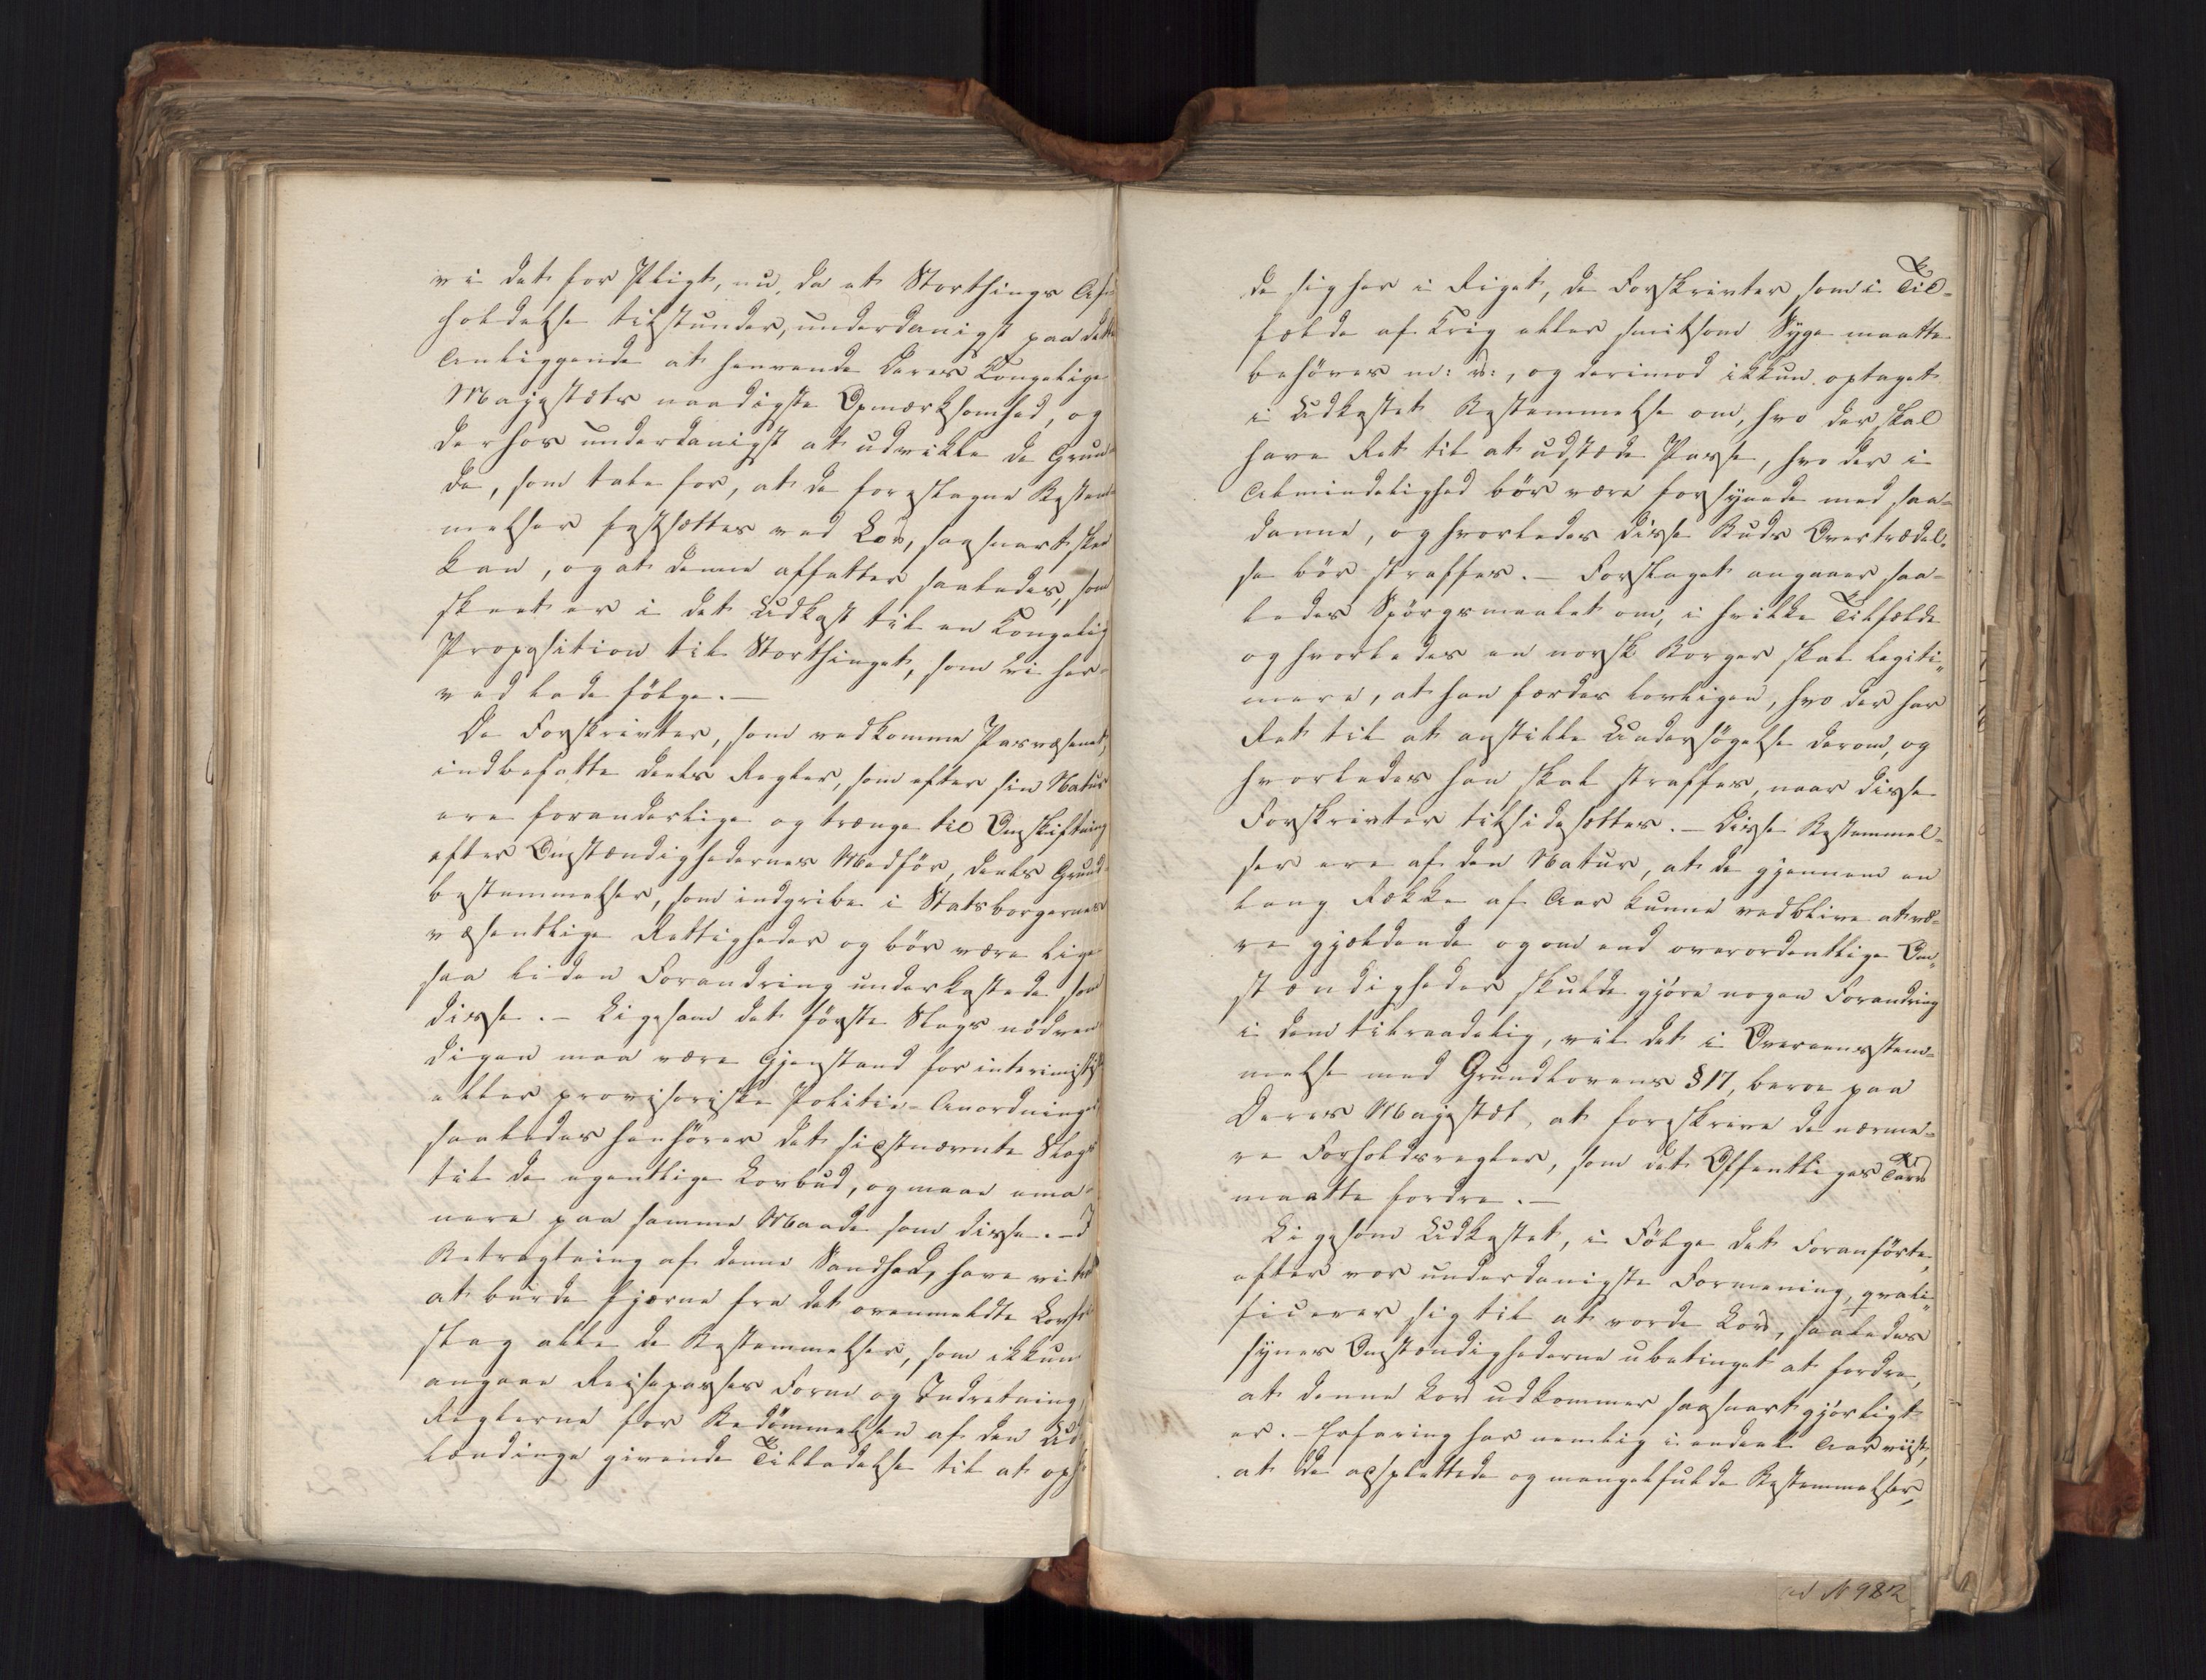 vi det for Pligt, nu, da et Storthings Af-
holdelse tilstunder, underdanigst paa dette
Anliggende at henvende Deres Kongelige
Majestæts naadigste Opmærksomhed, og
derhos underdanigst at udvikle de Grun-
de, som tale for, at de foreslagne Bestem-
melser fastsættes ved Lov, saasnart skee
kan, og at denne affattes saaledes, som
skeet er i det Udkast til en Kongelig
Proposition til Storthinget, som vi her-
ved lade følge. —
De Forskrivter, som vedkomme Pasvæsenet,
indbefatte deels Regler, som efter sin Natur
ere foranderlige og trænge til Omskiftning
efter Omstændighedernes Medfør, deels Grund-
bestemmelser, som indgribe i Statsborgernes
væsentlige Rettigheder og bør være lige
saa liden Forandring underkastede som
disse. — Ligesom det første Slags nødven-
digen maa være Gjenstand for interimistiske
eller provisoriske Politie-Anordninger
saaledes henhører det sidstnævnte Slags
til de egentlige Lovbud, og maae ema-
nere paa samme Maade som disse. — I
Betragtning af denne Sandhed, have vi troet
at burde fjerne fra det ovenmeldte Lovfor-
slag alle de Bestemmelser, som ikkun
angaae Reisepasses Form og Indretning,
Reglerne for Bedømmelsen af den Ud-
lændinge givende Tilladelse til at ophol-
de sig her i Riget, de Forskrivter som i Til-
fælde af Krig eller smitsom Syge maatte
behøves m: v:, og derimod ikkun optaget
i Udkastet Bestemmelse om, hvo der skal
have Ret til at udstæde Passe, hvo der i
Almindelighed bør være forsynede med saa-
danne, og hvorledes disse Buds Overtrædel-
se bør straffes. — Forslaget angaaer saa-
ledes Spørgsmaalet om, i hvilke Tilfælde
og hvorledes en norsk Borger skal legiti-
mere, at han færdes lovligen, hvo der har
Ret til at anstille Undersøgelse derom, og
hvorledes han skal straffes, naar disse
Forskrivter tilsidesættes. — Disse Bestemmel-
ser ere af den Natur, at de gjennem en
lang Række af Aar kunne vedblive at væ-
re gjældende og om end overordentlige Om-
stændigheder skulde gjøre nogen Forandring
i dem tilraadelig, vil det i Overeensstem-
melse med Grundlovens § 17, beroe paa
Deres Majestæt, at foreskrive de nærme-
re Forholdsregler, som det Offentliges Tarv
maatte fordre. —
Ligesom Udkastet, i Følge det Foranførte,
efter vor underdanigste Formening, qvali-
ficerer sig til at vorde Lov, saaledes
synes Omstændighederne ubetinget at fordre,
at denne Lov udkommer saasnart gjørligt
er. — Erfaring har nemlig i endeel Aar viist,
at de adsplittede og mangelfulde Bestemmelser,
ad N 982